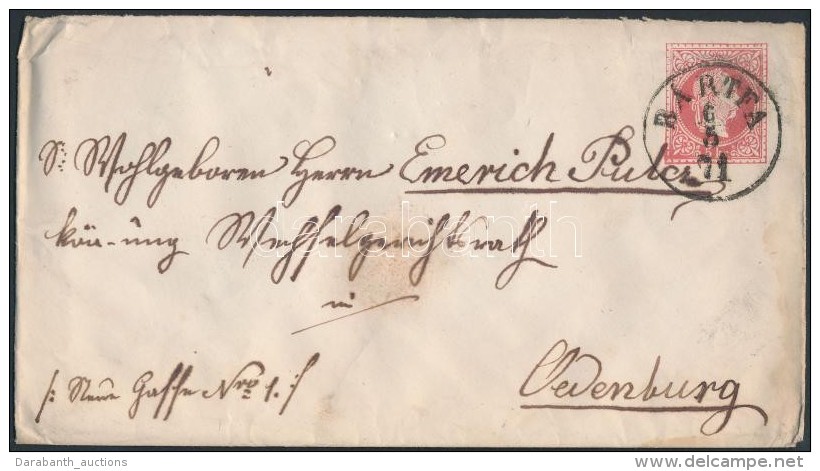 BARTFA
6
5
71
Sr Wohlgeboren Herrn Emerich Pulcz
kön-ung Wechselgerichtsrath
darabanth
in
/: Neue Gasse Nro 1. :/
Oedenburg
Darabanth_auctions
www.delcampe.net